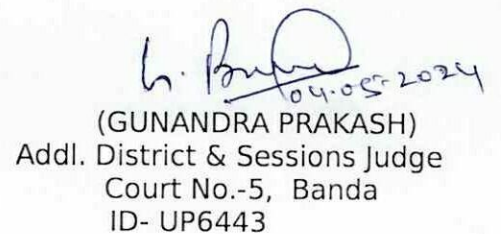 04.05.2024
(GUNANDRA PRAKASH)
Addl. District & Sessions Judge
Court No.-5, Banda
ID- UP6443